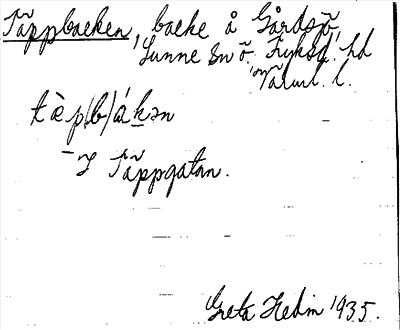 Täppbacken, backe å Gårdsjö,
Sunne sn ö. Fryksd. hd
Värml. l.
tὲp(b)ákən
I Täppgatan.
Greta Hedin 1935.